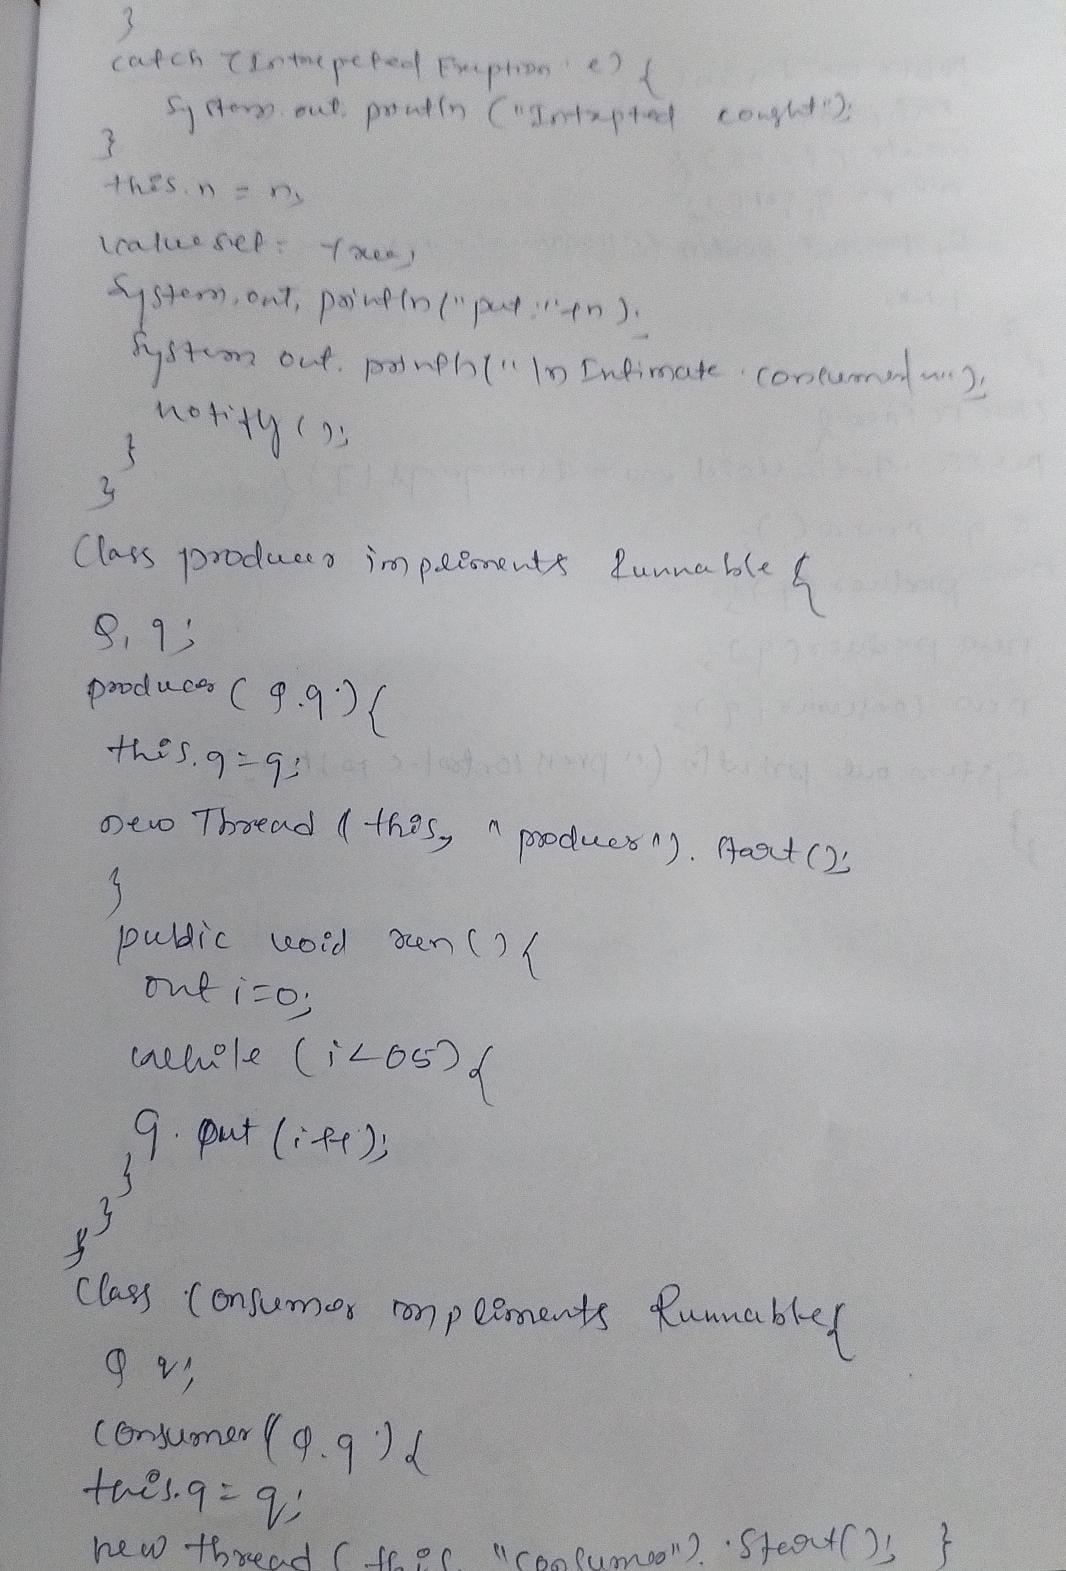 }
catch (Intrepeted Exception e) {
System.out.println ("Intrupted cought");
}
this.n = n;
valueset = True;
System.out.println("put:"+n);
System.out.println("\n Intimate consumer\n");
notify();
}
}
Class producer impliments Runnable {
Q, q;
producer (Q.q) {
this.q=q;
new Thread (this, "producer"). Start();
}
public void run() {
int i=0;
while (i<05) {
q. put (i++);
}
}
}
Class Consumer impliments Runnable{
Q q;
Consumer (Q.q) {
this.q = q;
new thread (this, "Consumer"). Start(); }